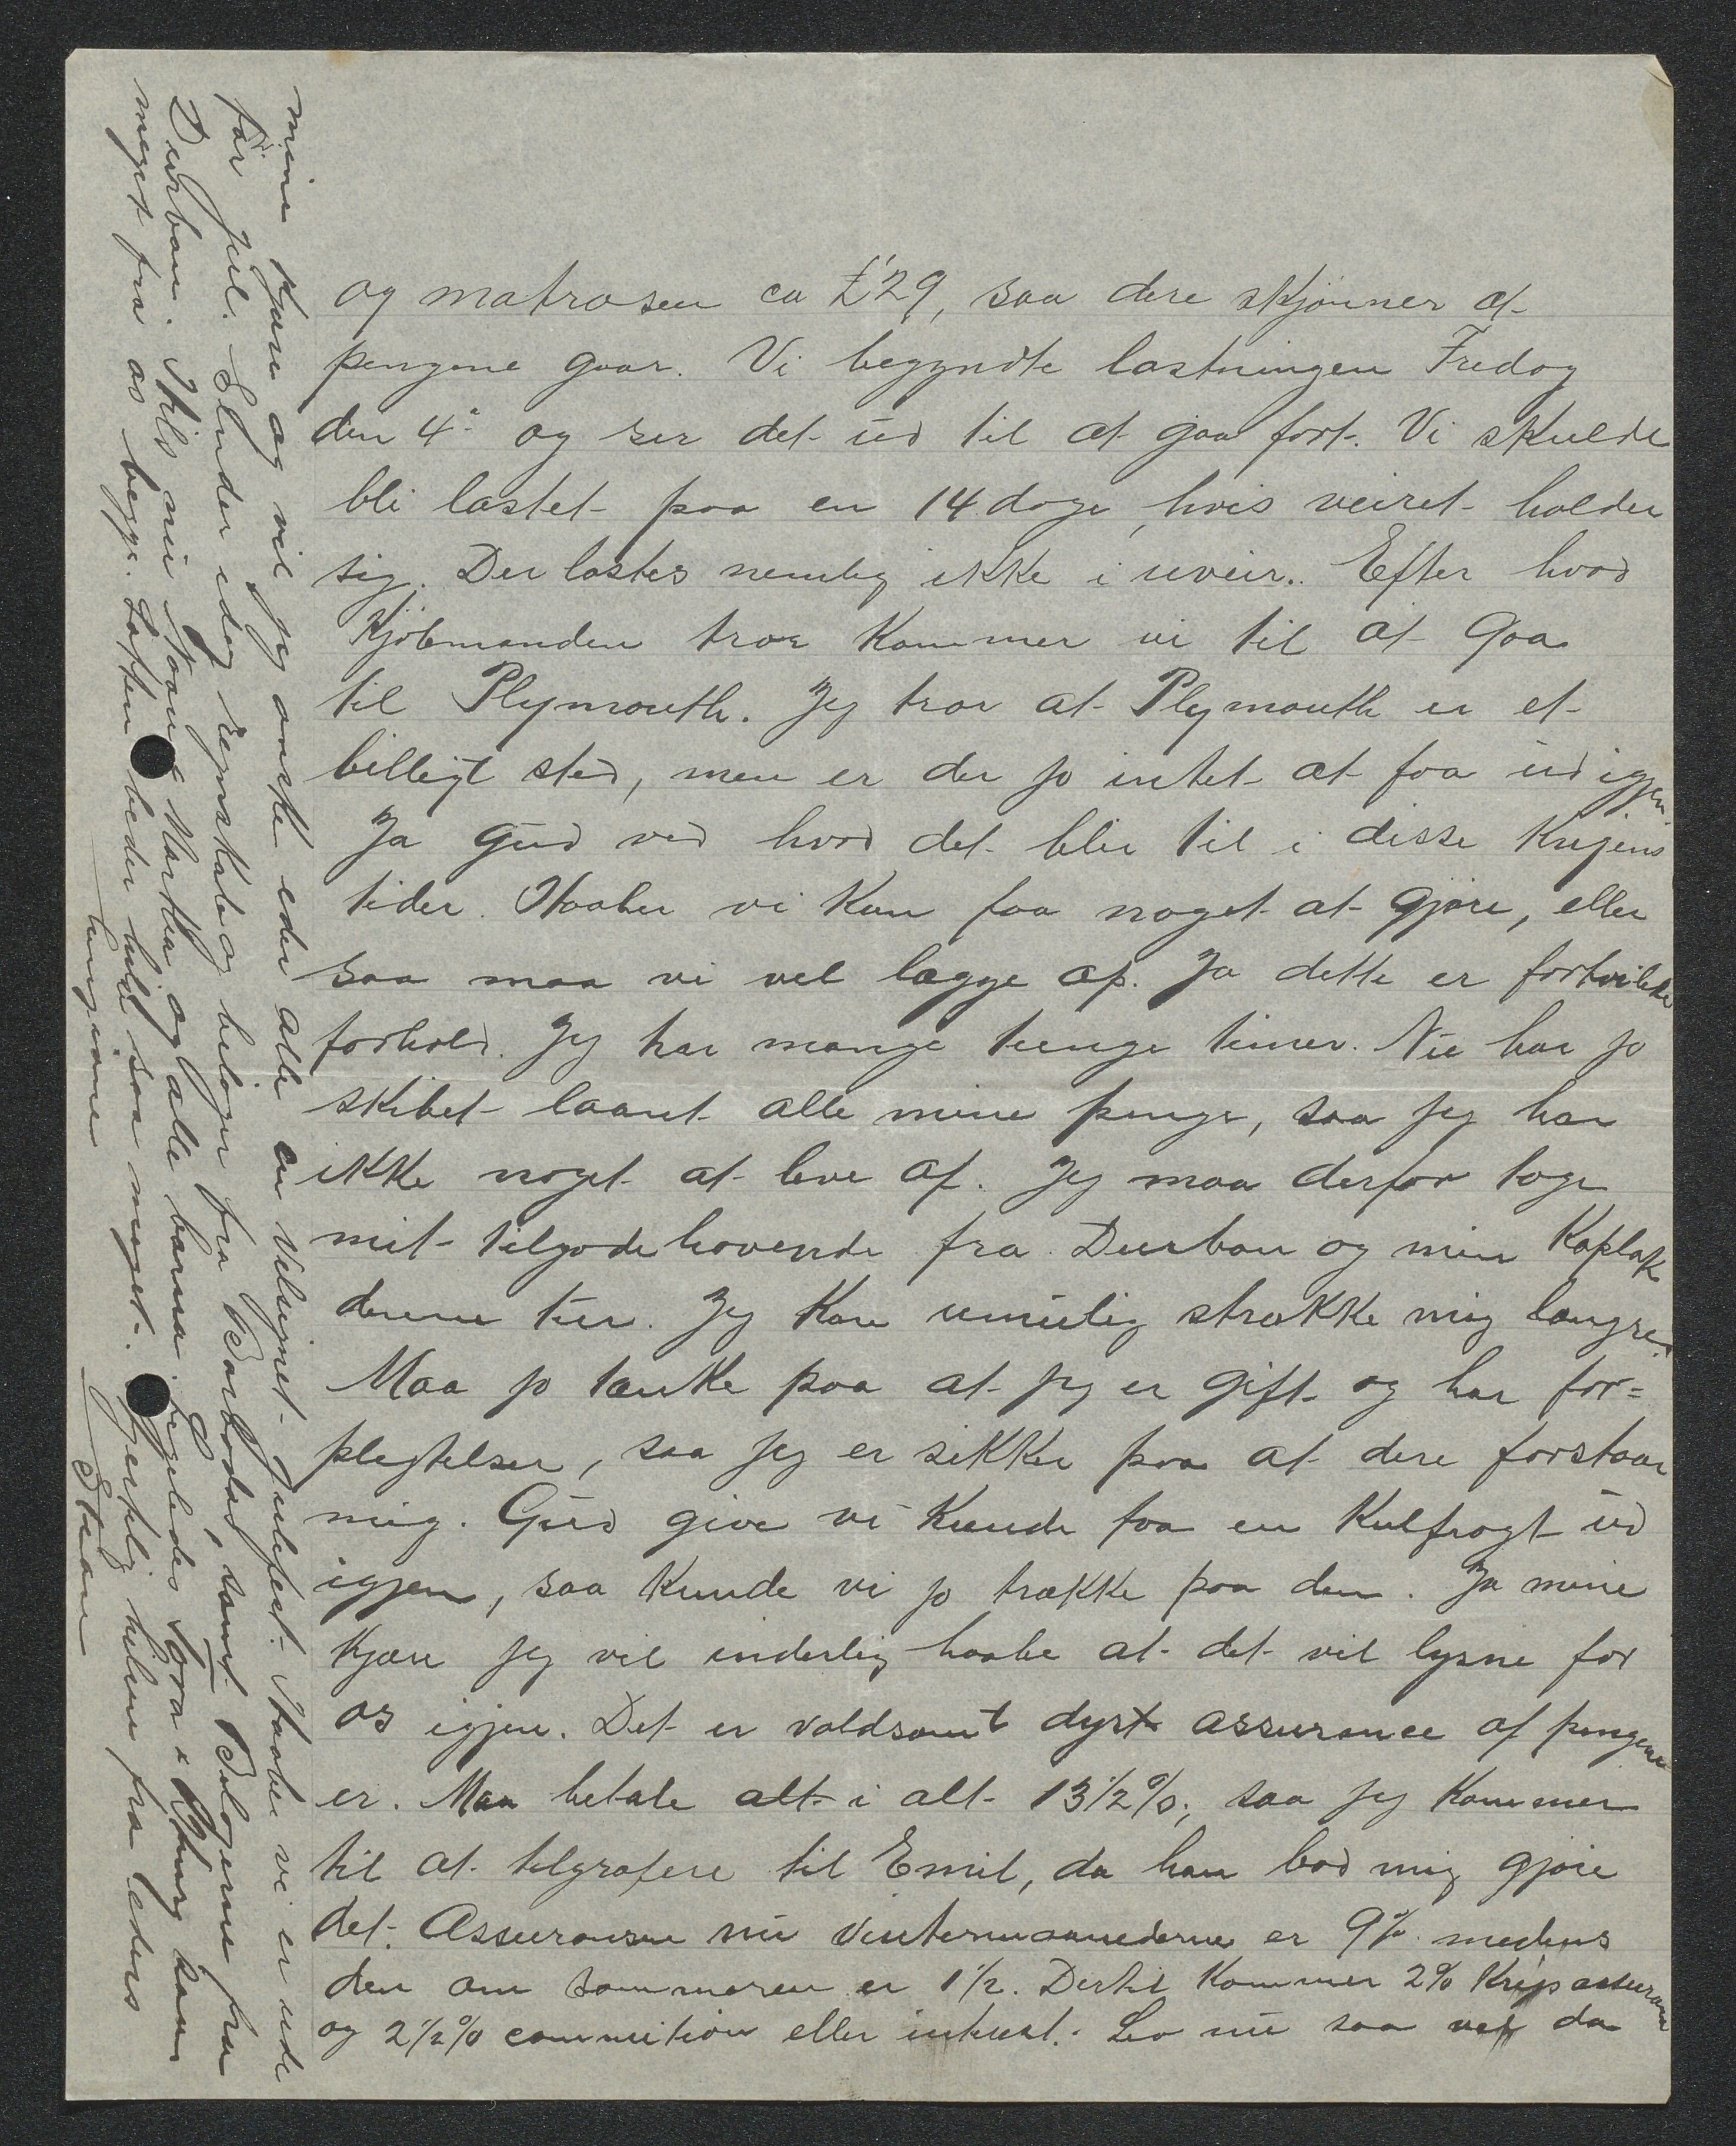 og matrosen ca £29, saa dere skjönner at
pengene gaar. Vi begyndte lastningen Fredag
den 4de og ser det ud til at gaa fort. Vi skulde
bli lastet paa en 14 dage, hvis veiret holder
sig. Der lastes nemlig ikke i uveir. Efter hvad
Kjöbmanden tror kommer vi til at gaa
til Plymouth. Jeg tror at Plymouth er et
billigt sted, men er der jo intet at faa ud igjen.
Ja Gud ved hvad det blir til i disse Krigens
tider. Haaber vi kan faa noget at gjøre, eller
saa maa vi vel lægge op. Ja dette er fortvilede
forhold. Jeg har mange tunge timer. Nu har jo
skibet laant alle mine penge, saa jeg har
ikke noget at leve af. Jeg maa derfor tage
mit tilgodehavende fra Durban og min Kaplak
denne tur. Jeg kan umulig strække mig længre.
Maa jo tænke paa at jeg er gift og har for=
pligtelser, saa jeg er sikker paa at dere forstaar
mig. Gud give vi kunde faa en Kulfragt ud
igjen, saa kunde vi jo trække paa den. Ja mine
kjære jeg vil inderlig haabe at det vil lysne for
os igjen. Det er voldsomt dyrt assurance af pengene
er. Maa betale alt i alt 13½%, saa jeg kommer
til at telgrafere til Emil, da han bad mig gjøre
det. Assuransen nu vintermaanederne er 9% medens
den om sommeren er 1½. Dertil kommer 2% Krigsassurance
og 2½% commition eller intrest. Lev nu saa vel da
mine kjære og vil jeg ønske eder alle en velsignet Julefest. Haaber vi er ude
før jul. Sender idag regnskab og bilager fra Barbados, samt Bilagene fra
Durban. Hils nu Martha og alle barna. Ligeledes Tora i Kburg ham
meget fra os begge. beder hilse saa meget. Hjertelig hilsen fra eders
hengivne